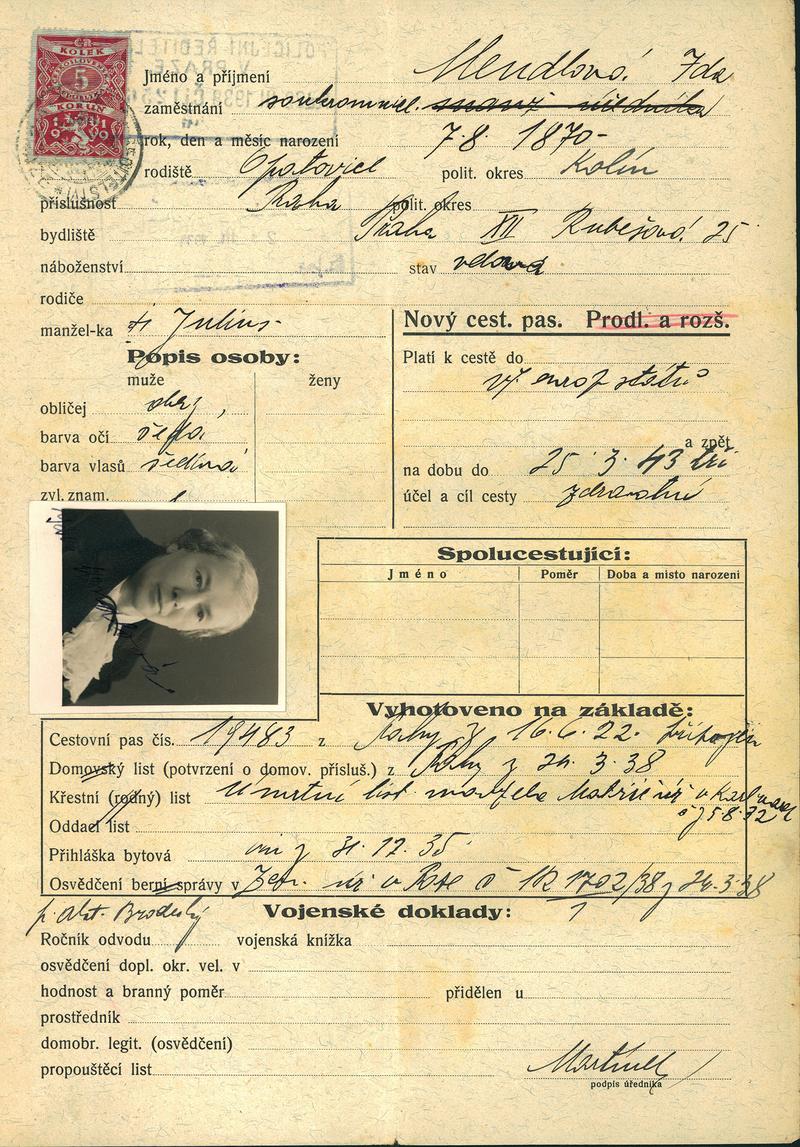 KOLEK
5
KORUN
Jméno a příjmení Mendlová Ida
zaměstnání soukromnice
rok, den a měsíc narození 7.8. 1870-
rodiště Opatovice polit. okres Kolín
příslušnost Praha polit. okres
bydliště Praha XII Rubešova 25
náboženství stav vdova
rodiče
manžel-ka Julius
Nový cest. pas. Prodl. a rozš.
Popis osoby:
Platí k cestě do
muže ženy
vš. evrop států
obličej obly
barva očí šedá
a zpět
barva vlasů šedivá
na dobu do 25.3.43
zvl. znam.
účel a cíl cesty zdravotní
Spolucestující:
Jméno Poměr Doba a místo narození
Vyhotoveno na základě:
Cestovní pas čís. 19483 z Prahy z 16.6.22.
Domovský list (potvrzení o domov. přísluš.) z Prahy z 24.3.38
Křestní (rodný) list Úmrtní list manžela
Oddací list
Přihláška bytová z 31.12.35
Osvědčení berní správy v č 1702/38 z 24.3.38
Vojenské doklady:
Ročník odvodu vojenská knížka
osvědčení dopl. okr. vel. v
hodnost a branný poměr přidělen u
prostředník
domobr. legit. (osvědčení)
propouštěcí list
podpis úředníka